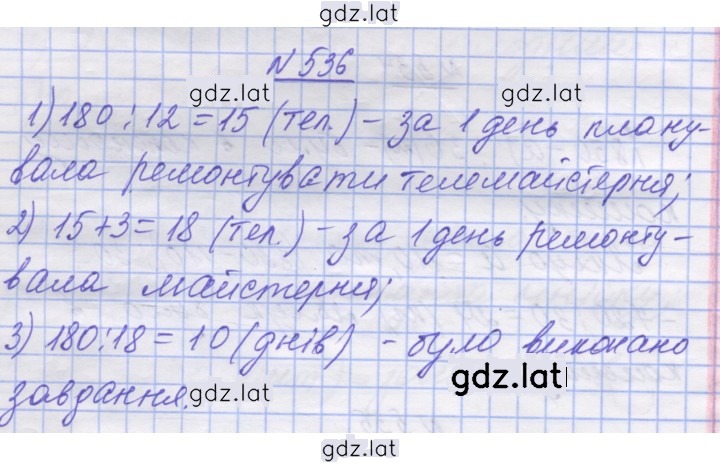 gdz.lat
№ 536
gdz.lat gdz.lat
1) 180 : 12 = 15 (тел.) - за 1 день плану-
вала ремонтувати телемайстерня;
2) 15 + 3 = 18 (тел.) - за 1 день ремонту-
вала майстерня;
3) 180 : 18 = 10 (днів) - було виконано
gdz.lat
завдання.
gdz.lat
gdz.lat